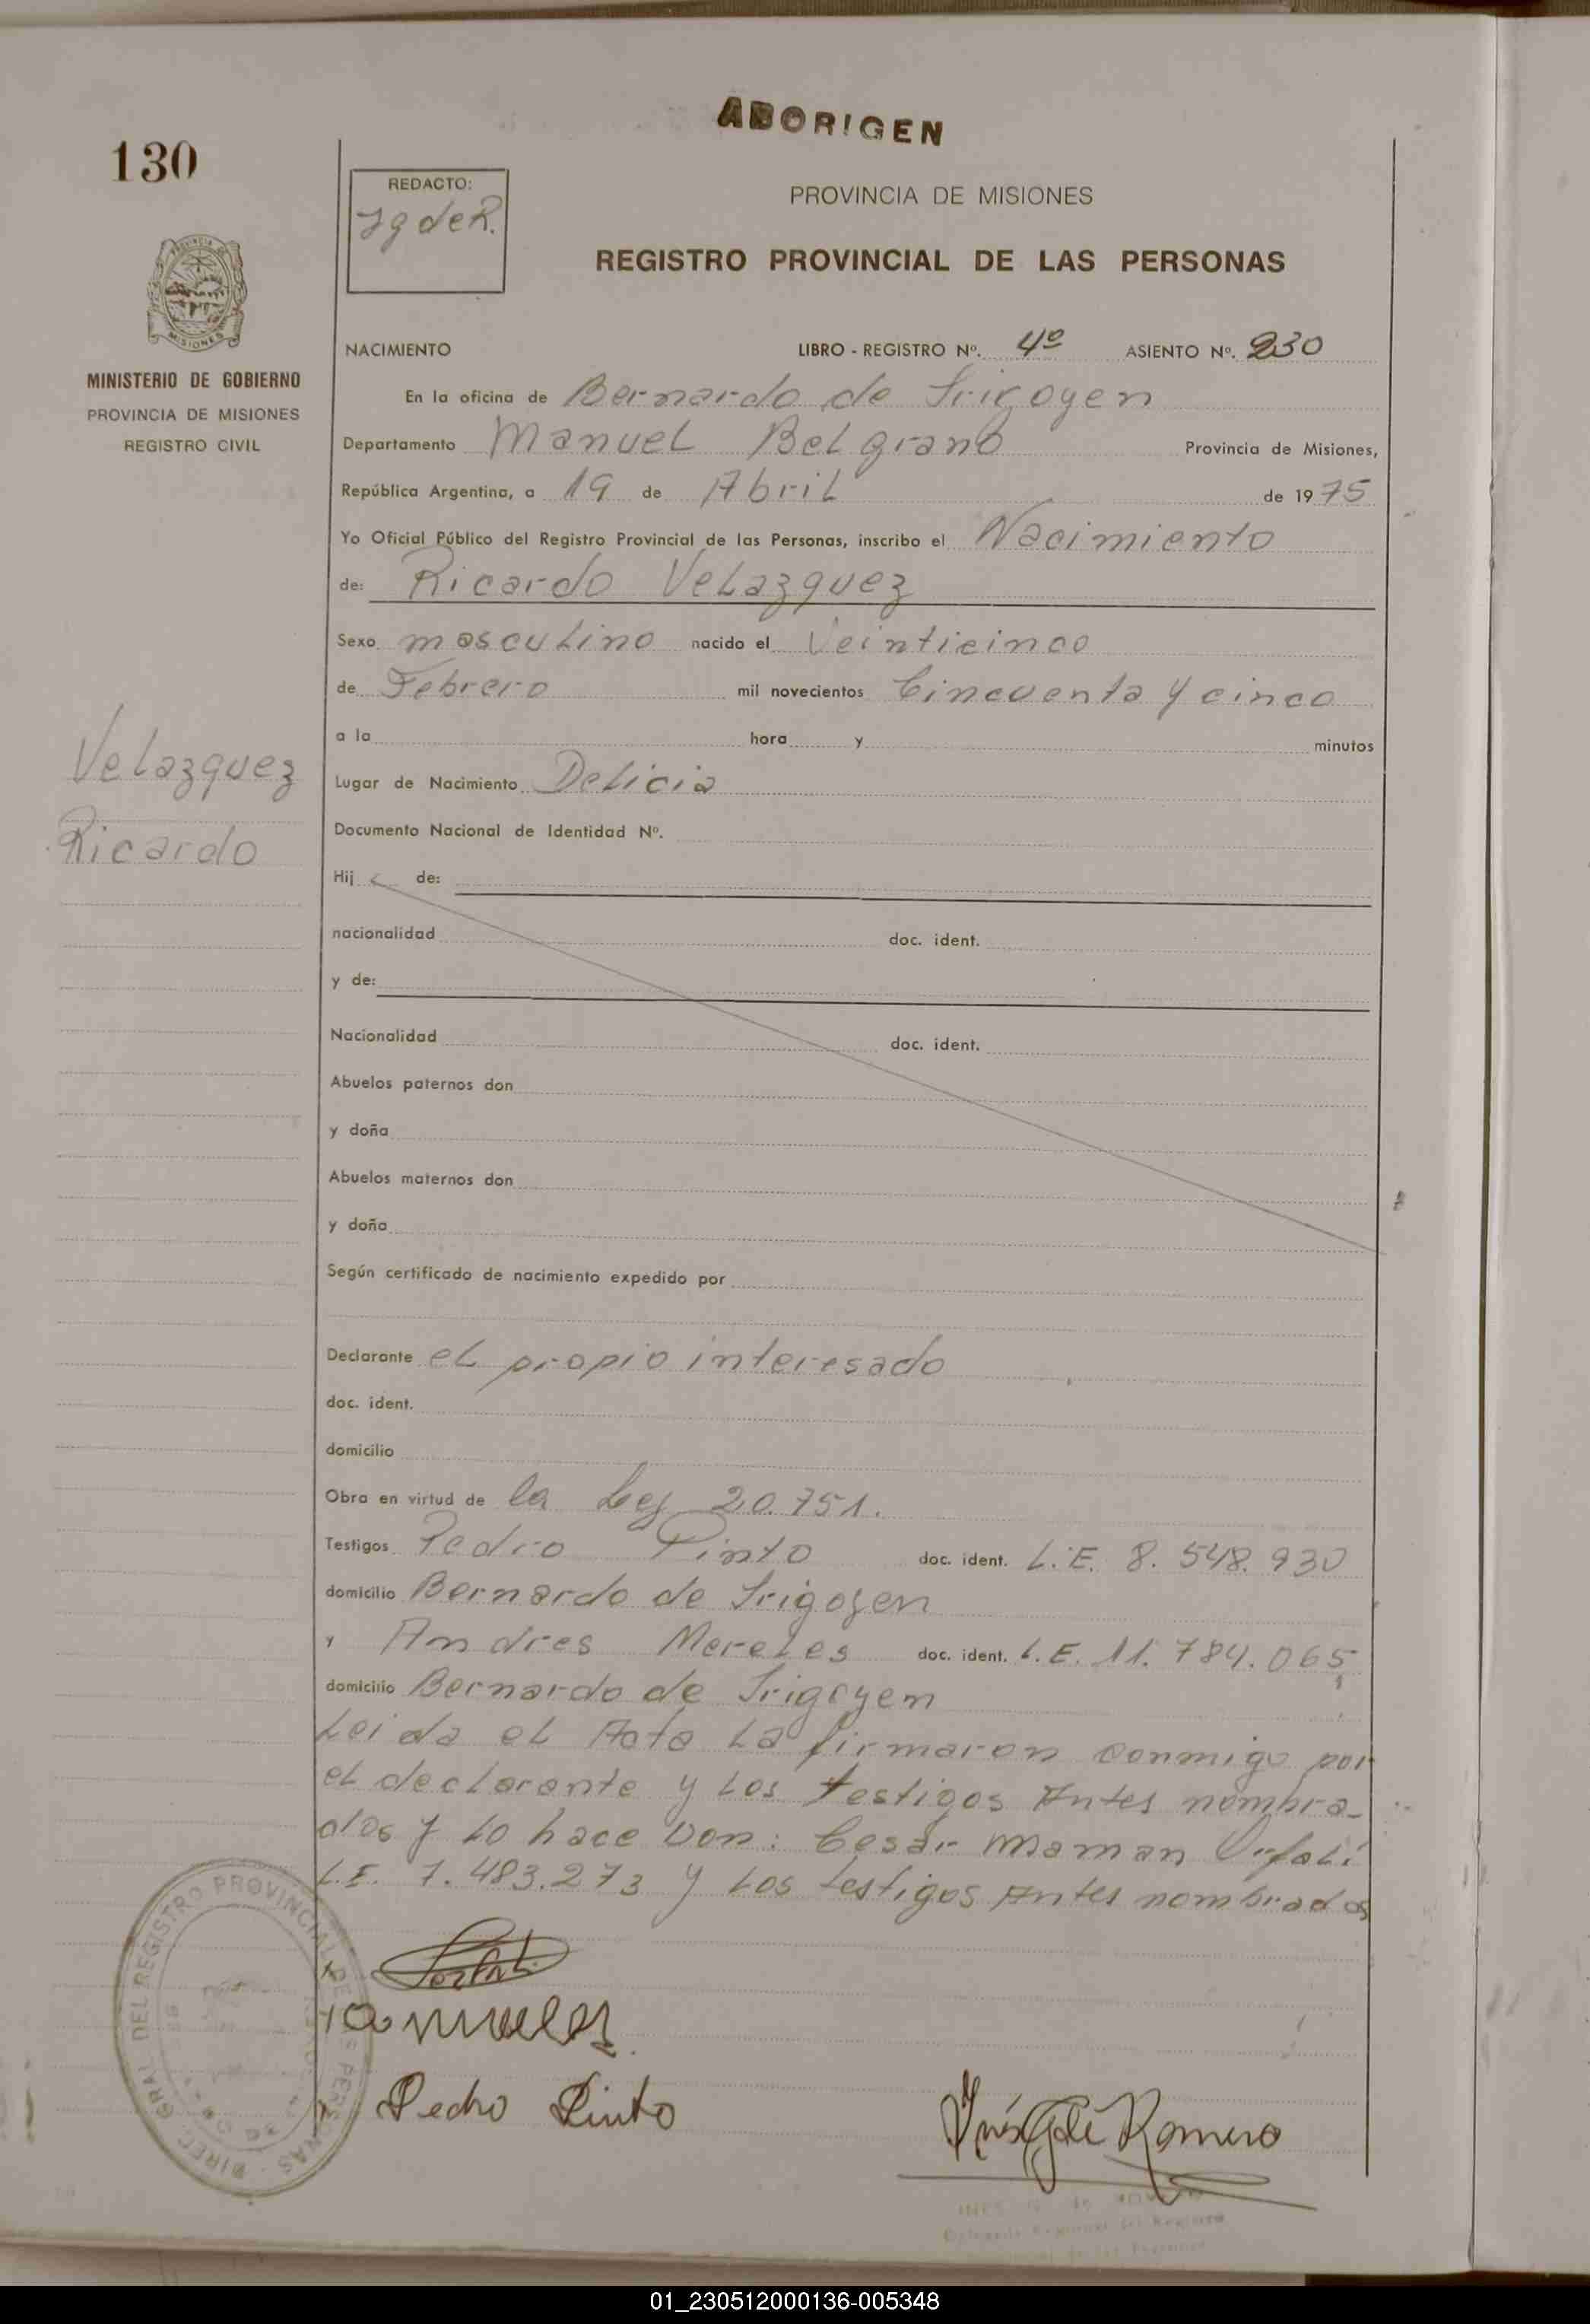 ABORIGEN
130
REDACTO:
Ig de R.
PROVINCIA DE MISIONES
REGISTRO PROVINCIAL DE LAS PERSONAS
MISIONES
MINISTERIO DE GOBIERNO
PROVINCIA DE MISIONES
REGISTRO CIVIL
NACIMIENTO LIBRO - REGISTRO Nº. 4º ASIENTO Nº. 230
En la oficina de Bernardo de Irigoyen
Departamento Manuel Belgrano Provincia de Misiones,
República Argentina, a 19 de Abril de 1975
Yo Oficial Público del Registro Provincial de las Personas, inscribo el Nacimiento
de: Ricardo Velazquez
Sexo masculino nacido el Veinticinco
de Febrero mil novecientos Cincuenta y cinco
a la hora y minutos
Velazquez
Ricardo
Lugar de Nacimiento Delicia
Documento Nacional de Identidad Nº.
Hij de:
nacionalidad doc. ident.
y de:
Nacionalidad doc. ident.
Abuelos paternos don
y doña
Abuelos maternos don
y doña
Según certificado de nacimiento expedido por
Declarante el propio interesado
doc. ident.
domicilio
Obra en virtud de la Ley 20.751.
Testigos Pedro Pinto doc. ident. L.E. 8.548.930
domicilio Bernardo de Irigoyen
y Andres Mereles doc. ident. L.E. 11.784.065
domicilio Bernardo de Irigoyen
Leida el Acta la firmaron conmigo por
el declarante y los testigos Antes nombra-
dos y lo hace Don: Cesar Maman
L.E. 7.483.273 y los testigos Antes nombrados
DIREC. GRAL. DEL REGISTRO PROVINCIAL DE LAS PERSONAS
Pedro Pinto
Romero
01_230512000136-005348